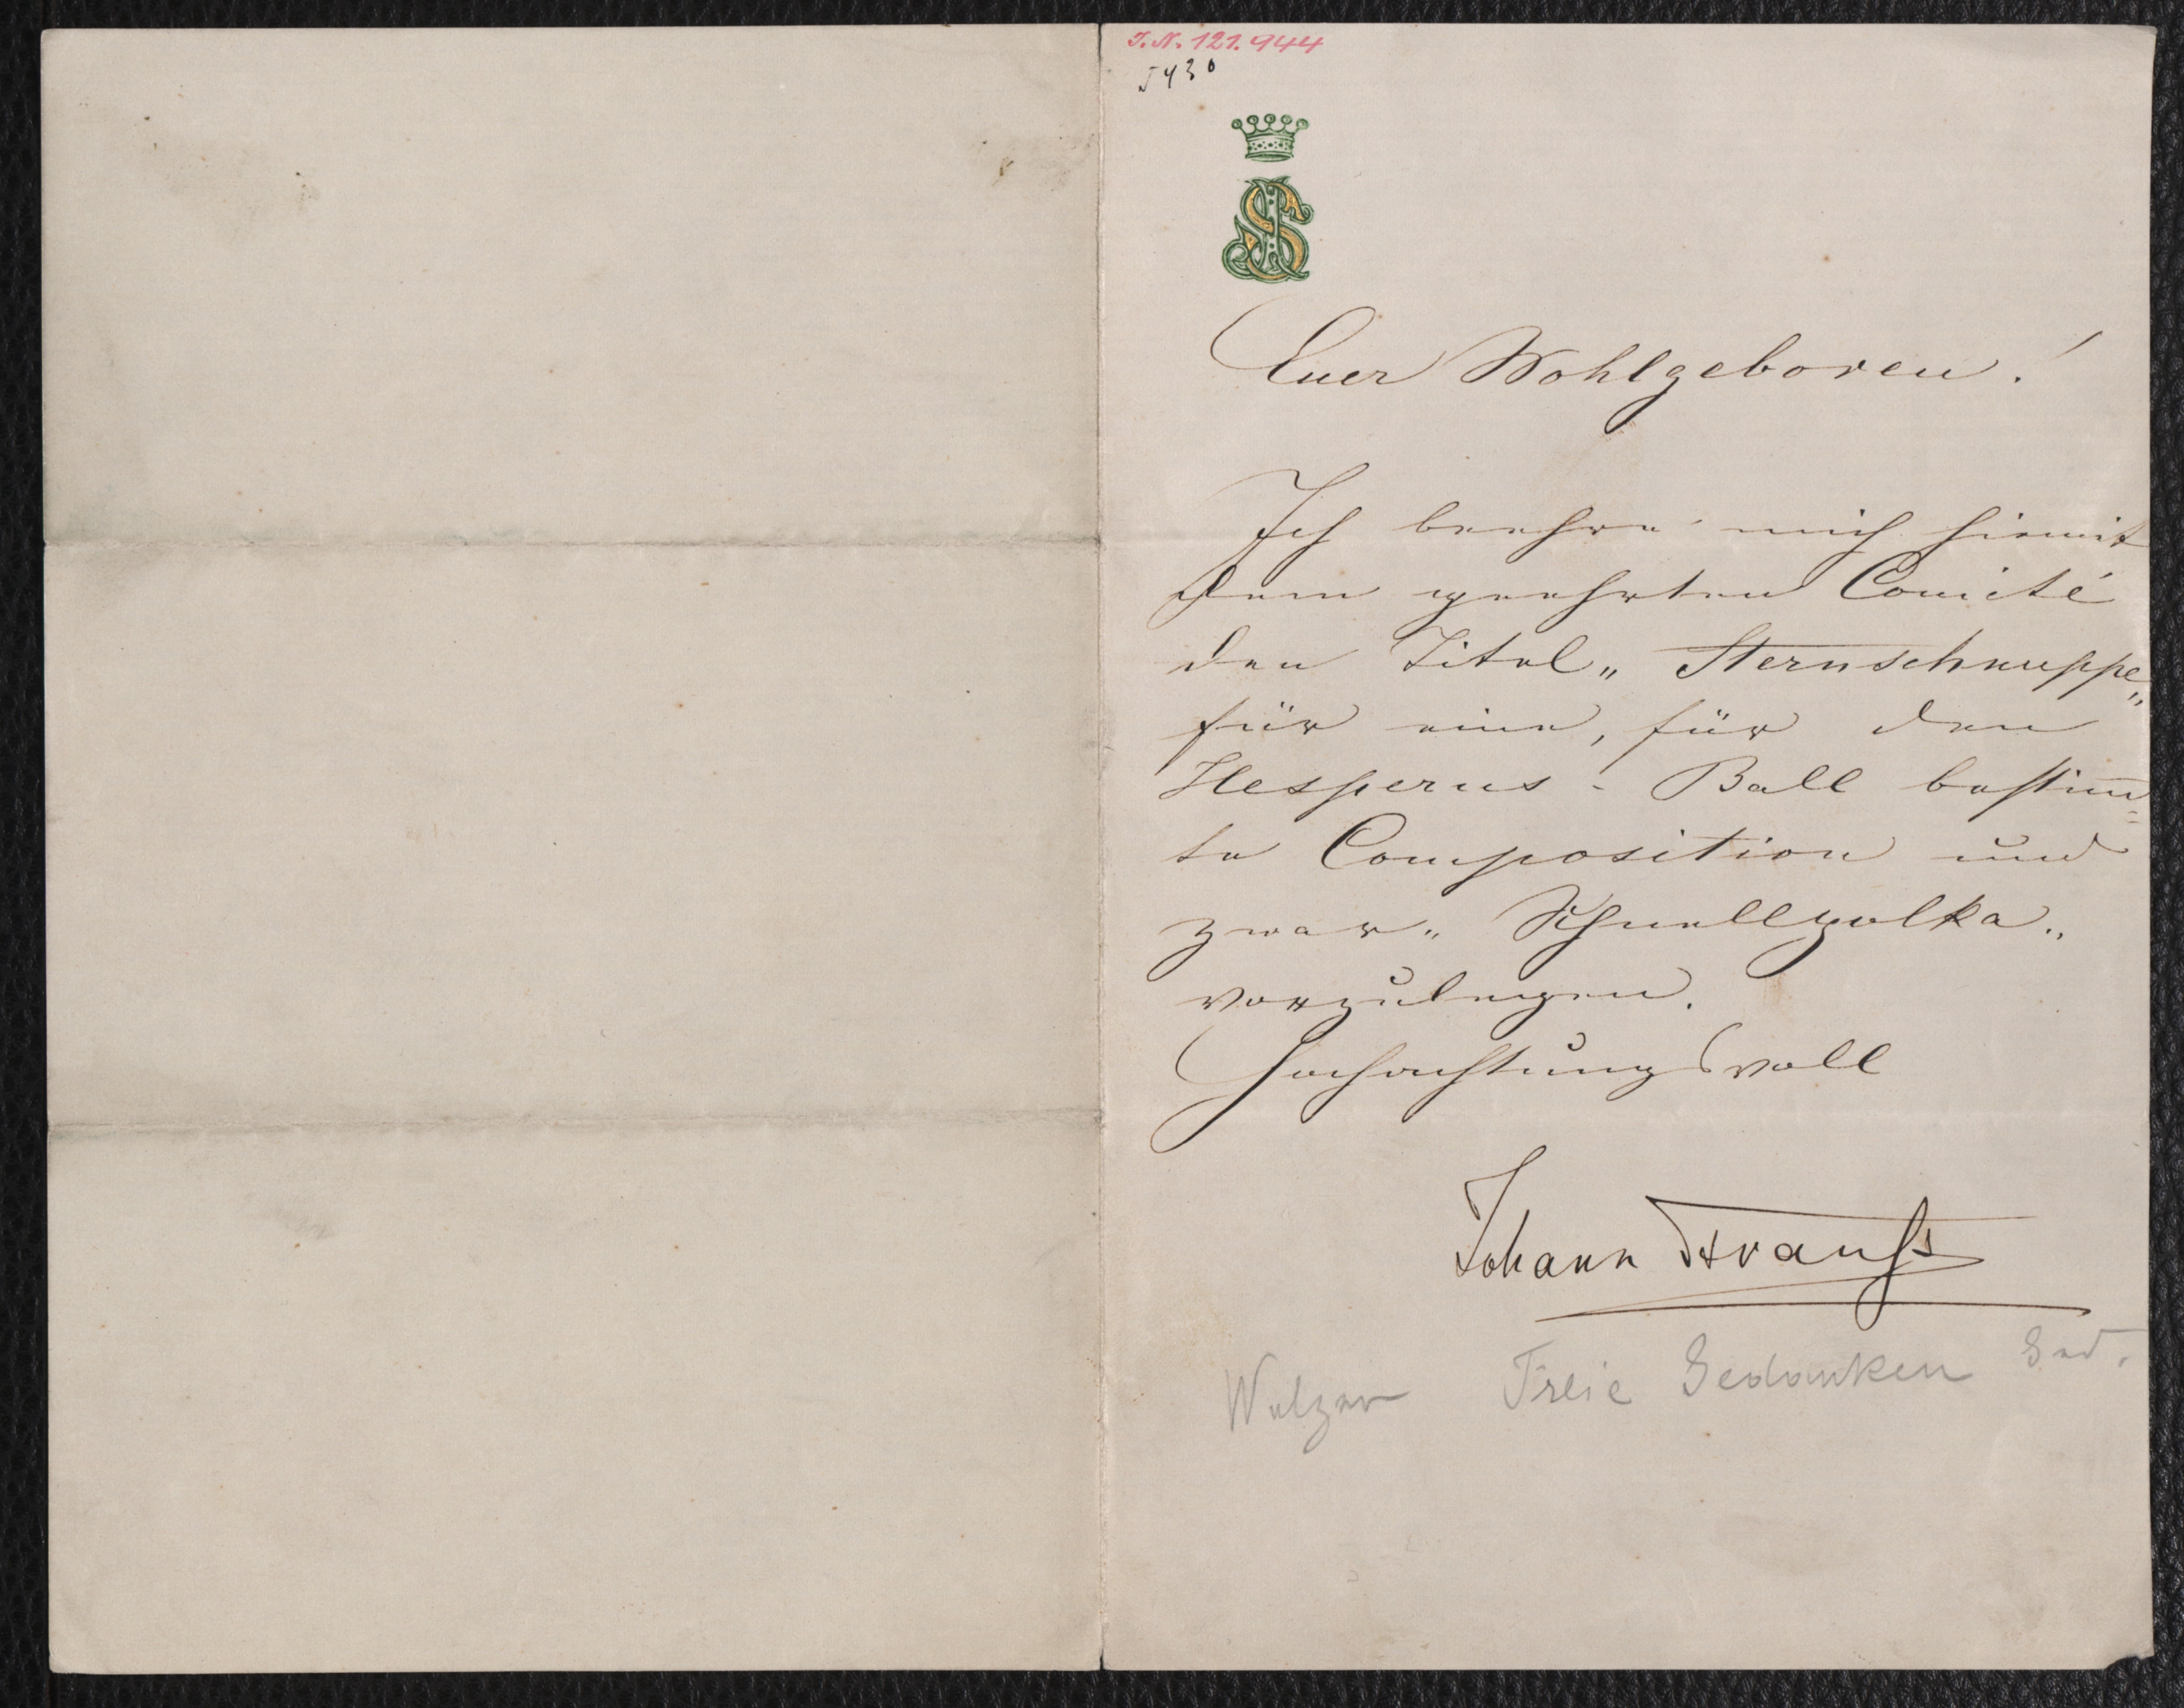 I. N. 121.944
5430
JS
Euer Wohlgeboren!
Ich beehre mich hiemit
dem geehrten Comité
den Titel „Sternschnuppe„
für eine, für den
Hesperus-Ball bestim̅=
te Composition und
zwar „Schnellpolka„
vorzulegen.
Hochachtungsvoll
Johann Strauß
Walzer Freie Gedanken Ed.